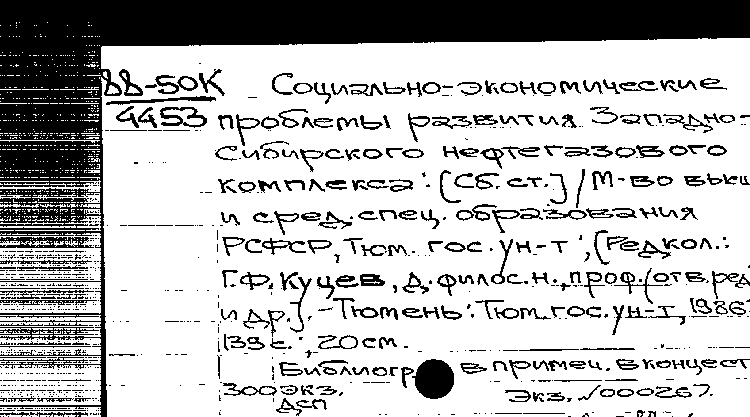 88-50К Социально-экономические
4453 проблемы развития Западно-
Сибирского нефтегазового
комплекса: [Сб. ст.] / М-во высш
и сред. спец. образования
РСФСР, Тюм. гос. ун-т; [Редкол.:
Г.Ф. Куцев, д. филос. н., проф. (отв. ред
и др.]. - Тюмень: Тюм. гос. ун-т, 1986
139 с.; 20 см.
Библиогр в примеч. в конце ст
300 экз. Экз. №000267.
Деп